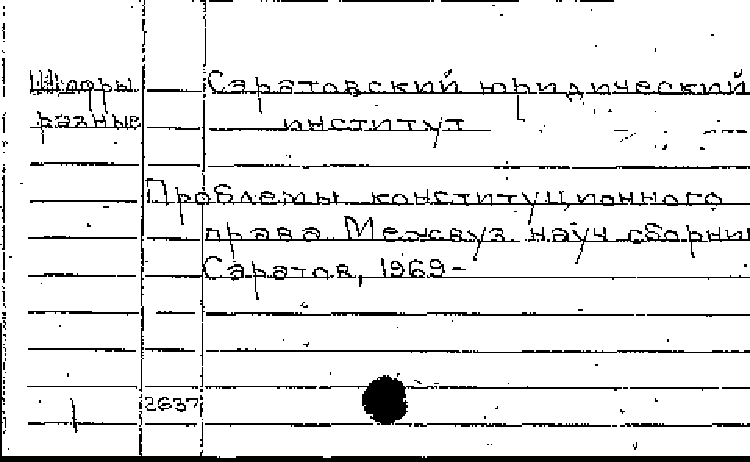 Шифры Саратовский юридический
разные институт
Проблемы конституционного
права Межвуз науч сборник
Саратов, 1969-
2637